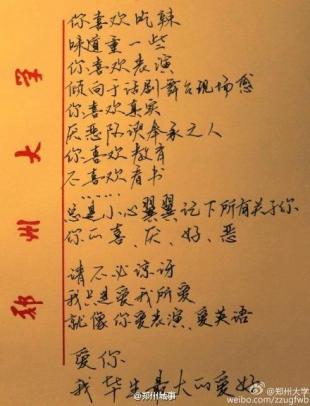 郑州大学
你喜欢吃辣
味道重一些
你喜欢表演
倾向于话剧舞台现场感
你喜欢真实
厌恶阿谀奉承之人
你喜欢教育
不喜欢看书
总是小心翼翼记下所有关于你
你的喜、厌、好、恶
请不必谅讶
我只是爱我所爱
就像你爱表演、爱英语
爱你
我毕生最大的爱好
@郑州城事
@郑州大学
weibo.com/zzugfwb